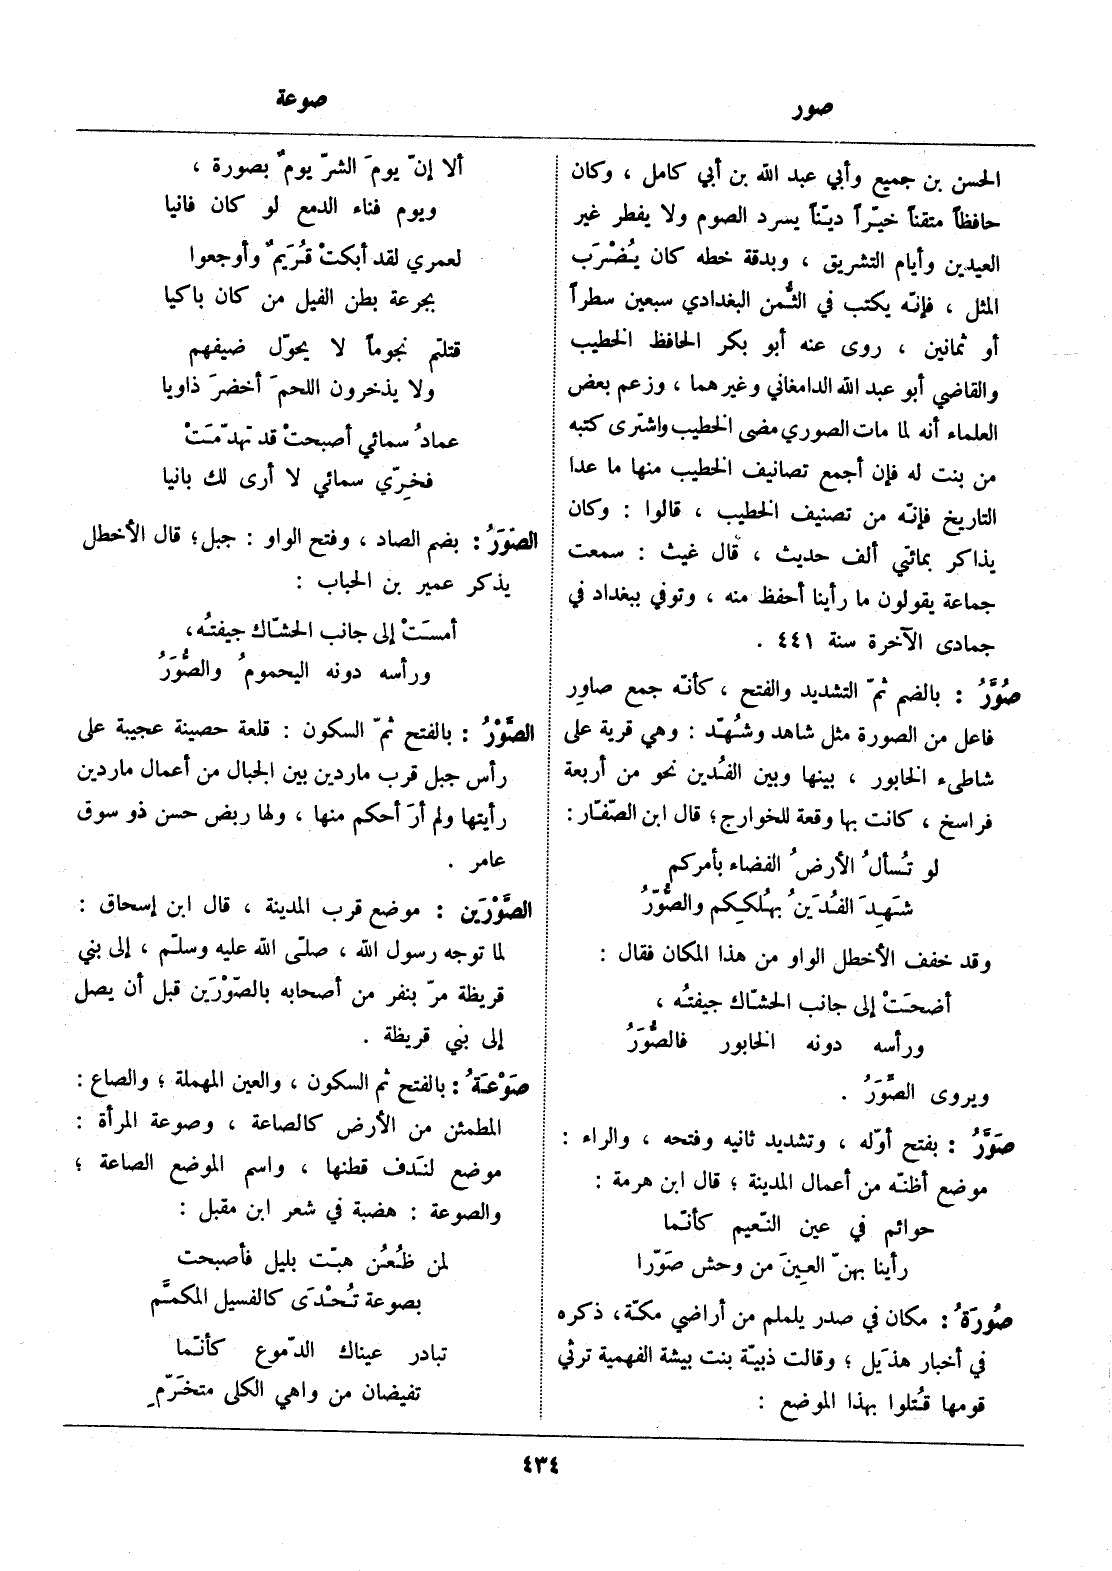 صور
صوعة
الحسن بن جميع وأبي عبد الله بن أبي كامل ، وكان
حافظاً متقناً خيّراً ديّناً يسرد الصوم ولا يفطر غير
العيدين وأيام التشريق ، وبدقة خطه كان يُضْرَب
المثل ، فإنّه يكتب في الثُّمن البغدادي سبعين سطراً
أو ثمانين ، روى عنه أبو بكر الحافظ الخطيب
والقاضي أبو عبد الله الدامغاني وغيرهما ، وزعم بعض
العلماء أنه لما مات الصوري مضى الخطيب واشترى كتبه
من بنت له فإن أجمع تصانيف الخطيب منها ما عدا
التاريخ فإنّه من تصنيف الخطيب ، قالوا : وكان
يذاكر بمائتي ألف حديث ، قال غيث : سمعت
جماعة يقولون ما رأينا أحفظ منه ، وتوفي ببغداد في
جمادى الآخرة سنة ٤٤١ .
صُوَّرُ : بالضم ثمّ التشديد والفتح ، كأنّه جمع صاوِر
فاعل من الصورة مثل شاهد وشُهّد : وهي قرية على
شاطىء الخابور ، بينها وبين الفُدين نحو من أربعة
فراسخ ، كانت بها وقعة للخوارج ؛ قال ابن الصّفّار :
لو تُسألُ الأرضُ الفضاء بأمركم
شَهِدَ الفُدَينُ بهُلكِكم والصُّوَّرُ
وقد خفف الأخطل الواو من هذا المكان فقال :
أضحَتْ إلى جانب الحشّاك جيفتُه ،
ورأسه دونه الخابور فالصُّوَرُ
ويروى الصَّوَرُ .
صَوَّرُ : بفتح أوّله ، وتشديد ثانيه وفتحه ، والراء :
موضع أظنّه من أعمال المدينة ؛ قال ابن هرمة :
حوائم في عين النّعيم كأنّما
رأينا بهنّ العِينَ من وحش صَوّرا
صُورَةُ : مكان في صدر يلملم من أراضي مكّة ، ذكره
في أخبار هذَيل ؛ وقالت ذبيّة بنت بيشة الفهمية ترثي
قومها قُتلوا بهذا الموضع :
ألا إنّ يومَ الشرّ يومٌ بصورة ،
ويوم فناء الدمع لو كان فانيا
لعمري لقد أبكتْ قُرَيمٌ وأوجعوا
بجرعة بطن الفيل من كان باكيا
قتلتم نجوماً لا يحوّل ضيفهم
ولا يذخرون اللحمَ أخضرَ ذاويا
عمادُ سمائي أصبحتْ قد تهدّمَتْ
فخرّي سمائي لا أرى لك بانيا
الصُوَرُ : بضم الصاد ، وفتح الواو : جبل ؛ قال الأخطل
يذكر عمير بن الحباب :
أمسَتْ إلى جانب الحشّاك جيفتُه ،
ورأسه دونه اليحمومُ والصُّوَرُ
الصَّوْرُ : بالفتح ثمّ السكون : قلعة حصينة عجيبة على
رأس جبل قرب ماردين بين الجبال من أعمال ماردين
رأيتها ولم أرَ أحكم منها ، ولها ربض حسن ذو سوق
عامر .
الصَّوْرَين : موضع قرب المدينة ، قال ابن إسحاق :
لما توجه رسول الله ، صلّى الله عليه وسلّم ، إلى بني
قريظة مرّ بنفر من أصحابه بالصّوْرَين قبل أن يصل
إلى بني قريظة .
صَوْعَةُ : بالفتح ثم السكون ، والعين المهملة ؛ والصاع :
المطمئن من الأرض كالصاعة ، وصوعة المرأة :
موضع لنَدف قطنها ، واسم الموضع الصاعة ؛
والصوعة : هضبة في شعر ابن مقبل :
لمن ظُعُن هبّت بليل فأصبحت
بصوعة تُحْدَى كالفسيل المكمَّم
تبادر عيناك الدّموع كأنّما
تفيضان من واهي الكلى متخَرّمِ
٤٣٤